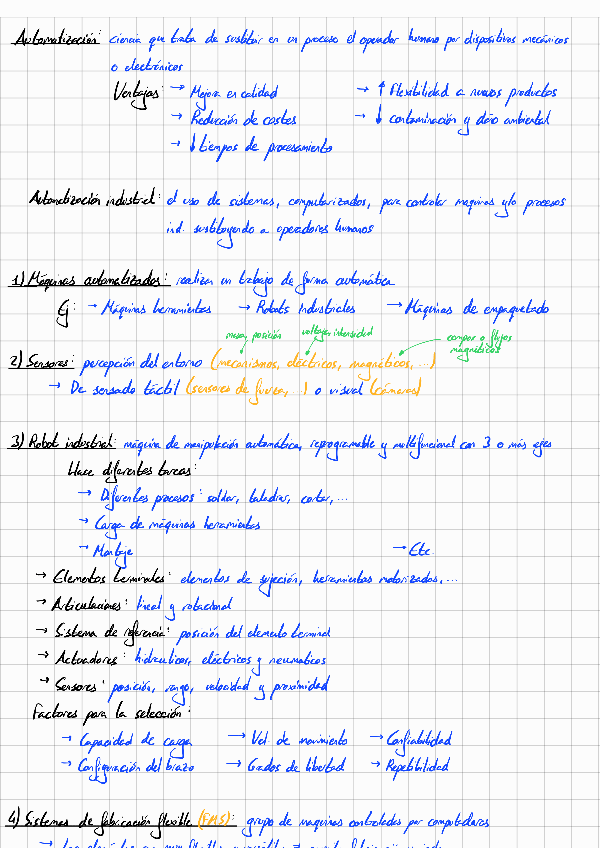 Automatización: ciencia que trata de sustituir en un proceso el operador humano por dispositivos mecánicos
o electrónicos
Ventajas: → Mejora en calidad → ↑ flexibilidad a nuevos productos
→ Reducción de costes → ↓ contaminación y daño ambiental
→ ↓ tiempos de procesamiento
Automatización industrial: el uso de sistemas, computarizados, para controlar maquinas y/o procesos
ind. sustituyendo a operadores humanos
1) Máquinas automatizadas: realizan un trabajo de forma automática
Ej: → Máquinas herramientas → Robots industriales → Máquinas de empaquetado
mesa, posición voltaje intensidad campos o flujos
magnéticos
2) Sensores: percepción del entorno (mecanismos, eléctricos, magnéticos, ...)
→ De sensado táctil (sensores de fuerza, ..) o visual (cámaras)
3) Robot industrial: máquina de manipulación automática, reprogramable y multifuncional con 3 o más ejes
Hace diferentes tareas:
→ Diferentes procesos: soldar, taladrar, cortar, ...
→ Carga de máquinas herramientas
→ Montaje → Etc.
→ Elementos terminales: elementos de sujeción, herramientas motorizadas, ...
→ Articulaciones: lineal y rotacional
→ Sistema de referencia: posición del elemento terminal
→ Actuadores: hidraulicos, eléctricos y neumaticos
→ Sensores: posición, rango, velocidad y proximidad
Factores para la selección:
→ Capacidad de carga → Vel. de movimiento → Confiabilidad
→ Configuración del brazo → Grados de libertad → Repetibilidad
4) Sistemas de fabricación flexible (FMS): grupo de maquinas controladas por computadoras